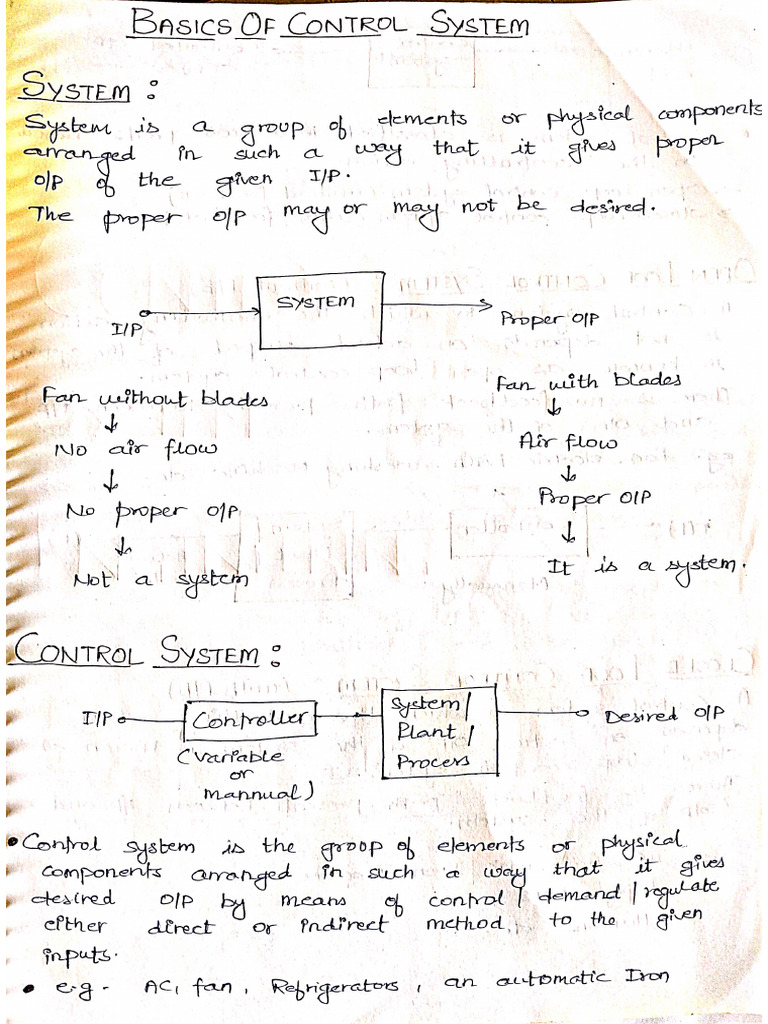 BASICS OF CONTROL SYSTEM
SYSTEM :
System is a group of elements or physical components
arranged in such a way that it gives proper
O/P of the given I/P.
The proper O/P may or may not be desired.
I/P
SYSTEM
Proper O/P
Fan without blades
↓
No air flow
↓
No proper O/P
↓
Not a system
Fan with blades
↓
Air flow
↓
Proper O/P
↓
It is a system.
CONTROL SYSTEM :
I/P
Controller
(Variable
or
Mannual)
System/
Plant/
Process
Desired O/P
• Control system is the groop of elements or physical
components arranged in such a way that it gives
desired O/P by means of control / demand / regulate
either direct or indirect method, to the given
inputs.
• e.g - AC, fan, Refrigerators, an automatic Iron